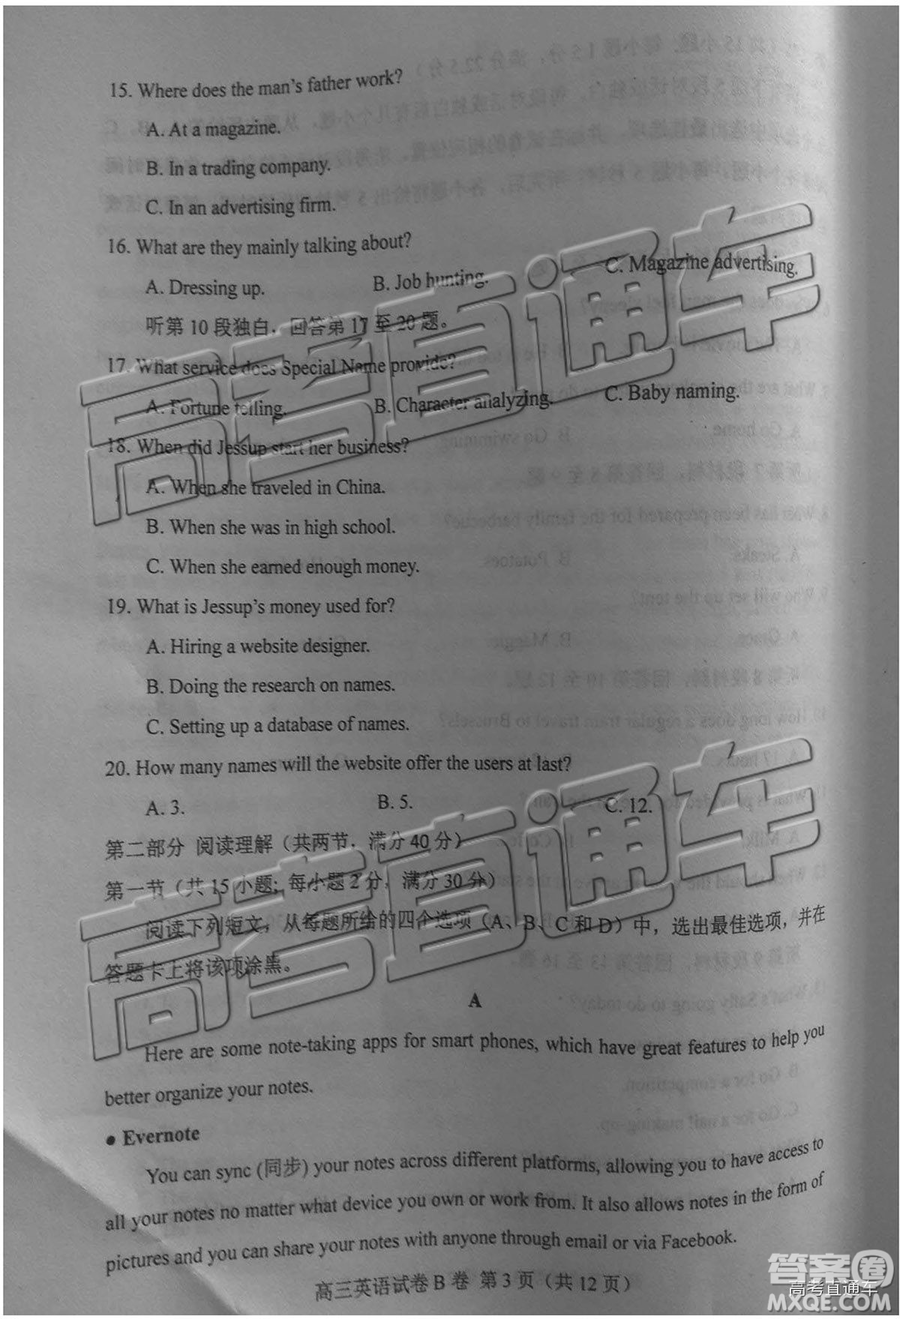 15. Where does the man's father work?
A. At a magazine.
B. In a trading company.
C. In an advertising firm.
16. What are they mainly talking about?
A. Dressing up. B. Job hunting. C. Magazine advertising.
听第 10 段独白，回答第 17 至 20 题。
17. What service does Special Name provide?
A. Fortune telling. B. Character analyzing. C. Baby naming.
18. When did Jessup start her business?
A. When she traveled in China.
B. When she was in high school.
C. When she earned enough money.
19. What is Jessup's money used for?
A. Hiring a website designer.
B. Doing the research on names.
C. Setting up a database of names.
20. How many names will the website offer the users at last?
A. 3. B. 5. C. 12.
第二部分 阅读理解（共两节，满分 40 分）
第一节（共 15 小题; 每小题 2 分，满分 30 分）
阅读下列短文，从每题所给的四个选项（A、B、C 和 D）中，选出最佳选项，并在
答题卡上将该项涂黑。
A
Here are some note-taking apps for smart phones, which have great features to help you
better organize your notes.
● Evernote
You can sync (同步) your notes across different platforms, allowing you to have access to
all your notes no matter what device you own or work from. It also allows notes in the form of
pictures and you can share your notes with anyone through email or via Facebook.
高三英语试卷 B 卷 第 3 页（共 12 页）
高考直通车
高考直通车
答案圈
高考直通车
MXQE.COM